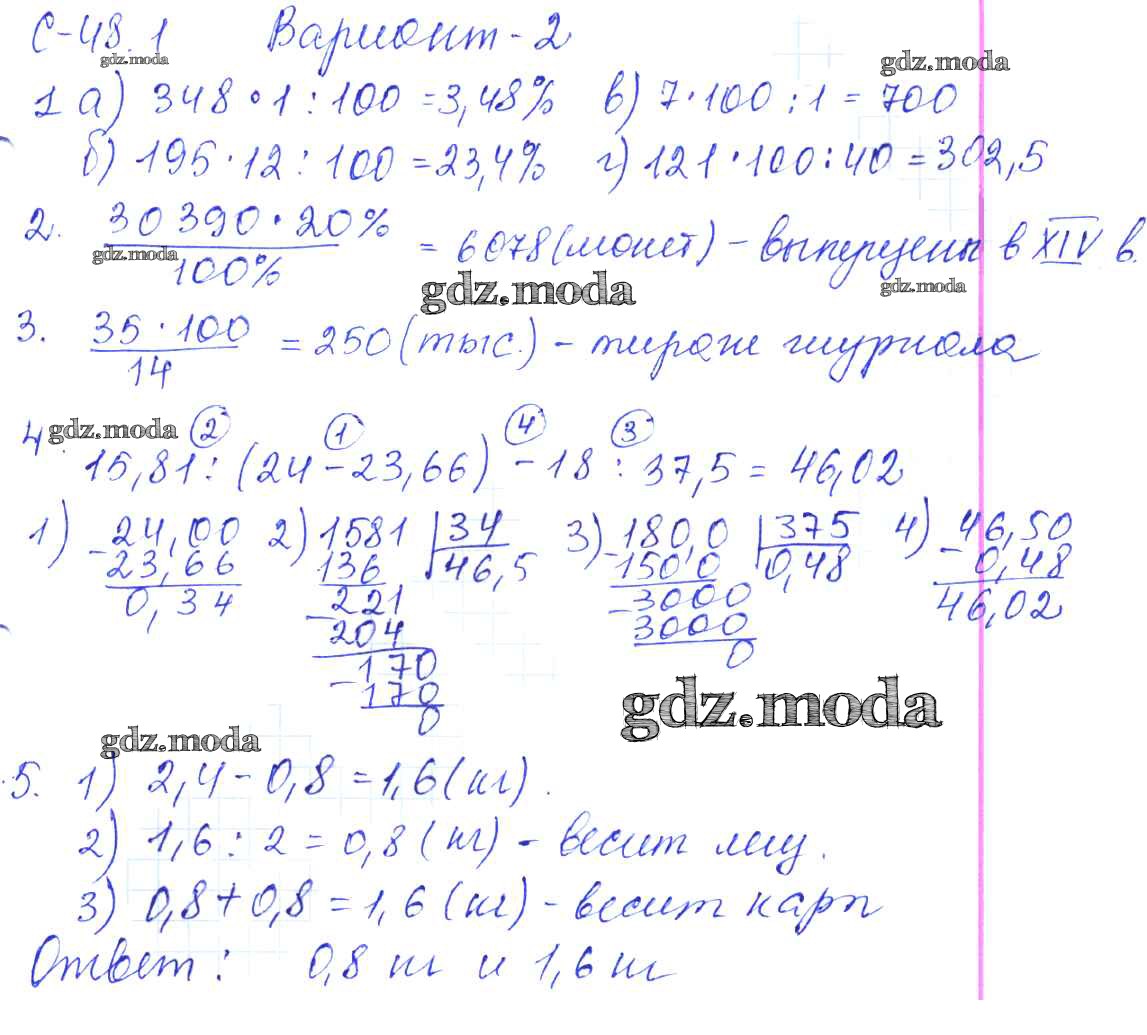 С-48.1 Вариант-2
gdz.moda gdz.moda
1 а) 348·1:100=3,48% в) 7·100:1=700
б) 195·12:100=23,4% г) 121·100:40=302,5
2. 30390·20%/100% = 6078(монет) – выпущены в XIV в.
gdz.moda gdz.moda gdz.moda
3. 35·100/14 = 250(тыс.) – тираж журнала
4. gdz.moda 2 1 4 3
15,81:(24-23,66) -18:37,5=46,02
1) 24,00 2) 1581 34 3) 180,0 375 4) 46,50
- 23,66 136 46,5 - 150 0 0,48 - 0,48
0,34 - 221 - 3000 46,02
204 3000
- 170 0
170
0
gdz.moda
gdz.moda
5. 1) 2,4-0,8=1,6(кг).
2) 1,6:2=0,8(кг) - весит лещ.
3) 0,8+0,8=1,6(кг) - весит карп
Ответ: 0,8 кг и 1,6 кг